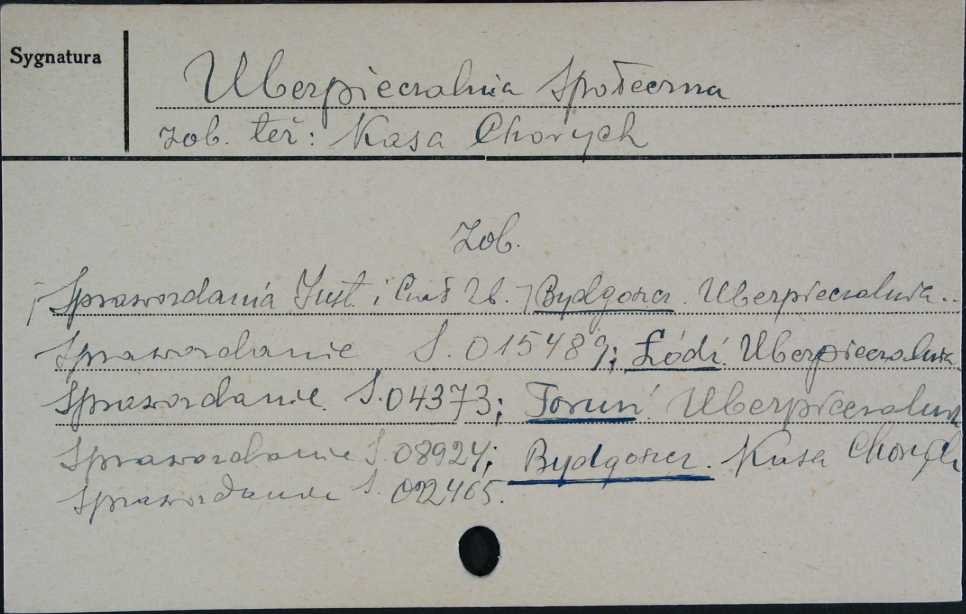 Sygnatura
Ubezpieczalnia Społeczna
zob. też: Kasa Chorych
Zob.
Sprawozdania Inst. i Ub. Bydgoszcz. Ubezpieczalnia..
Sprawozdanie S. 015489; Łódź. Ubezpieczalnia
Sprawozdanie. S. 04373; Toruń. Ubezpieczalnia
Sprawozdanie S. 08924; Bydgoszcz. Kasa Chorych
Sprawozdanie S. 012465.